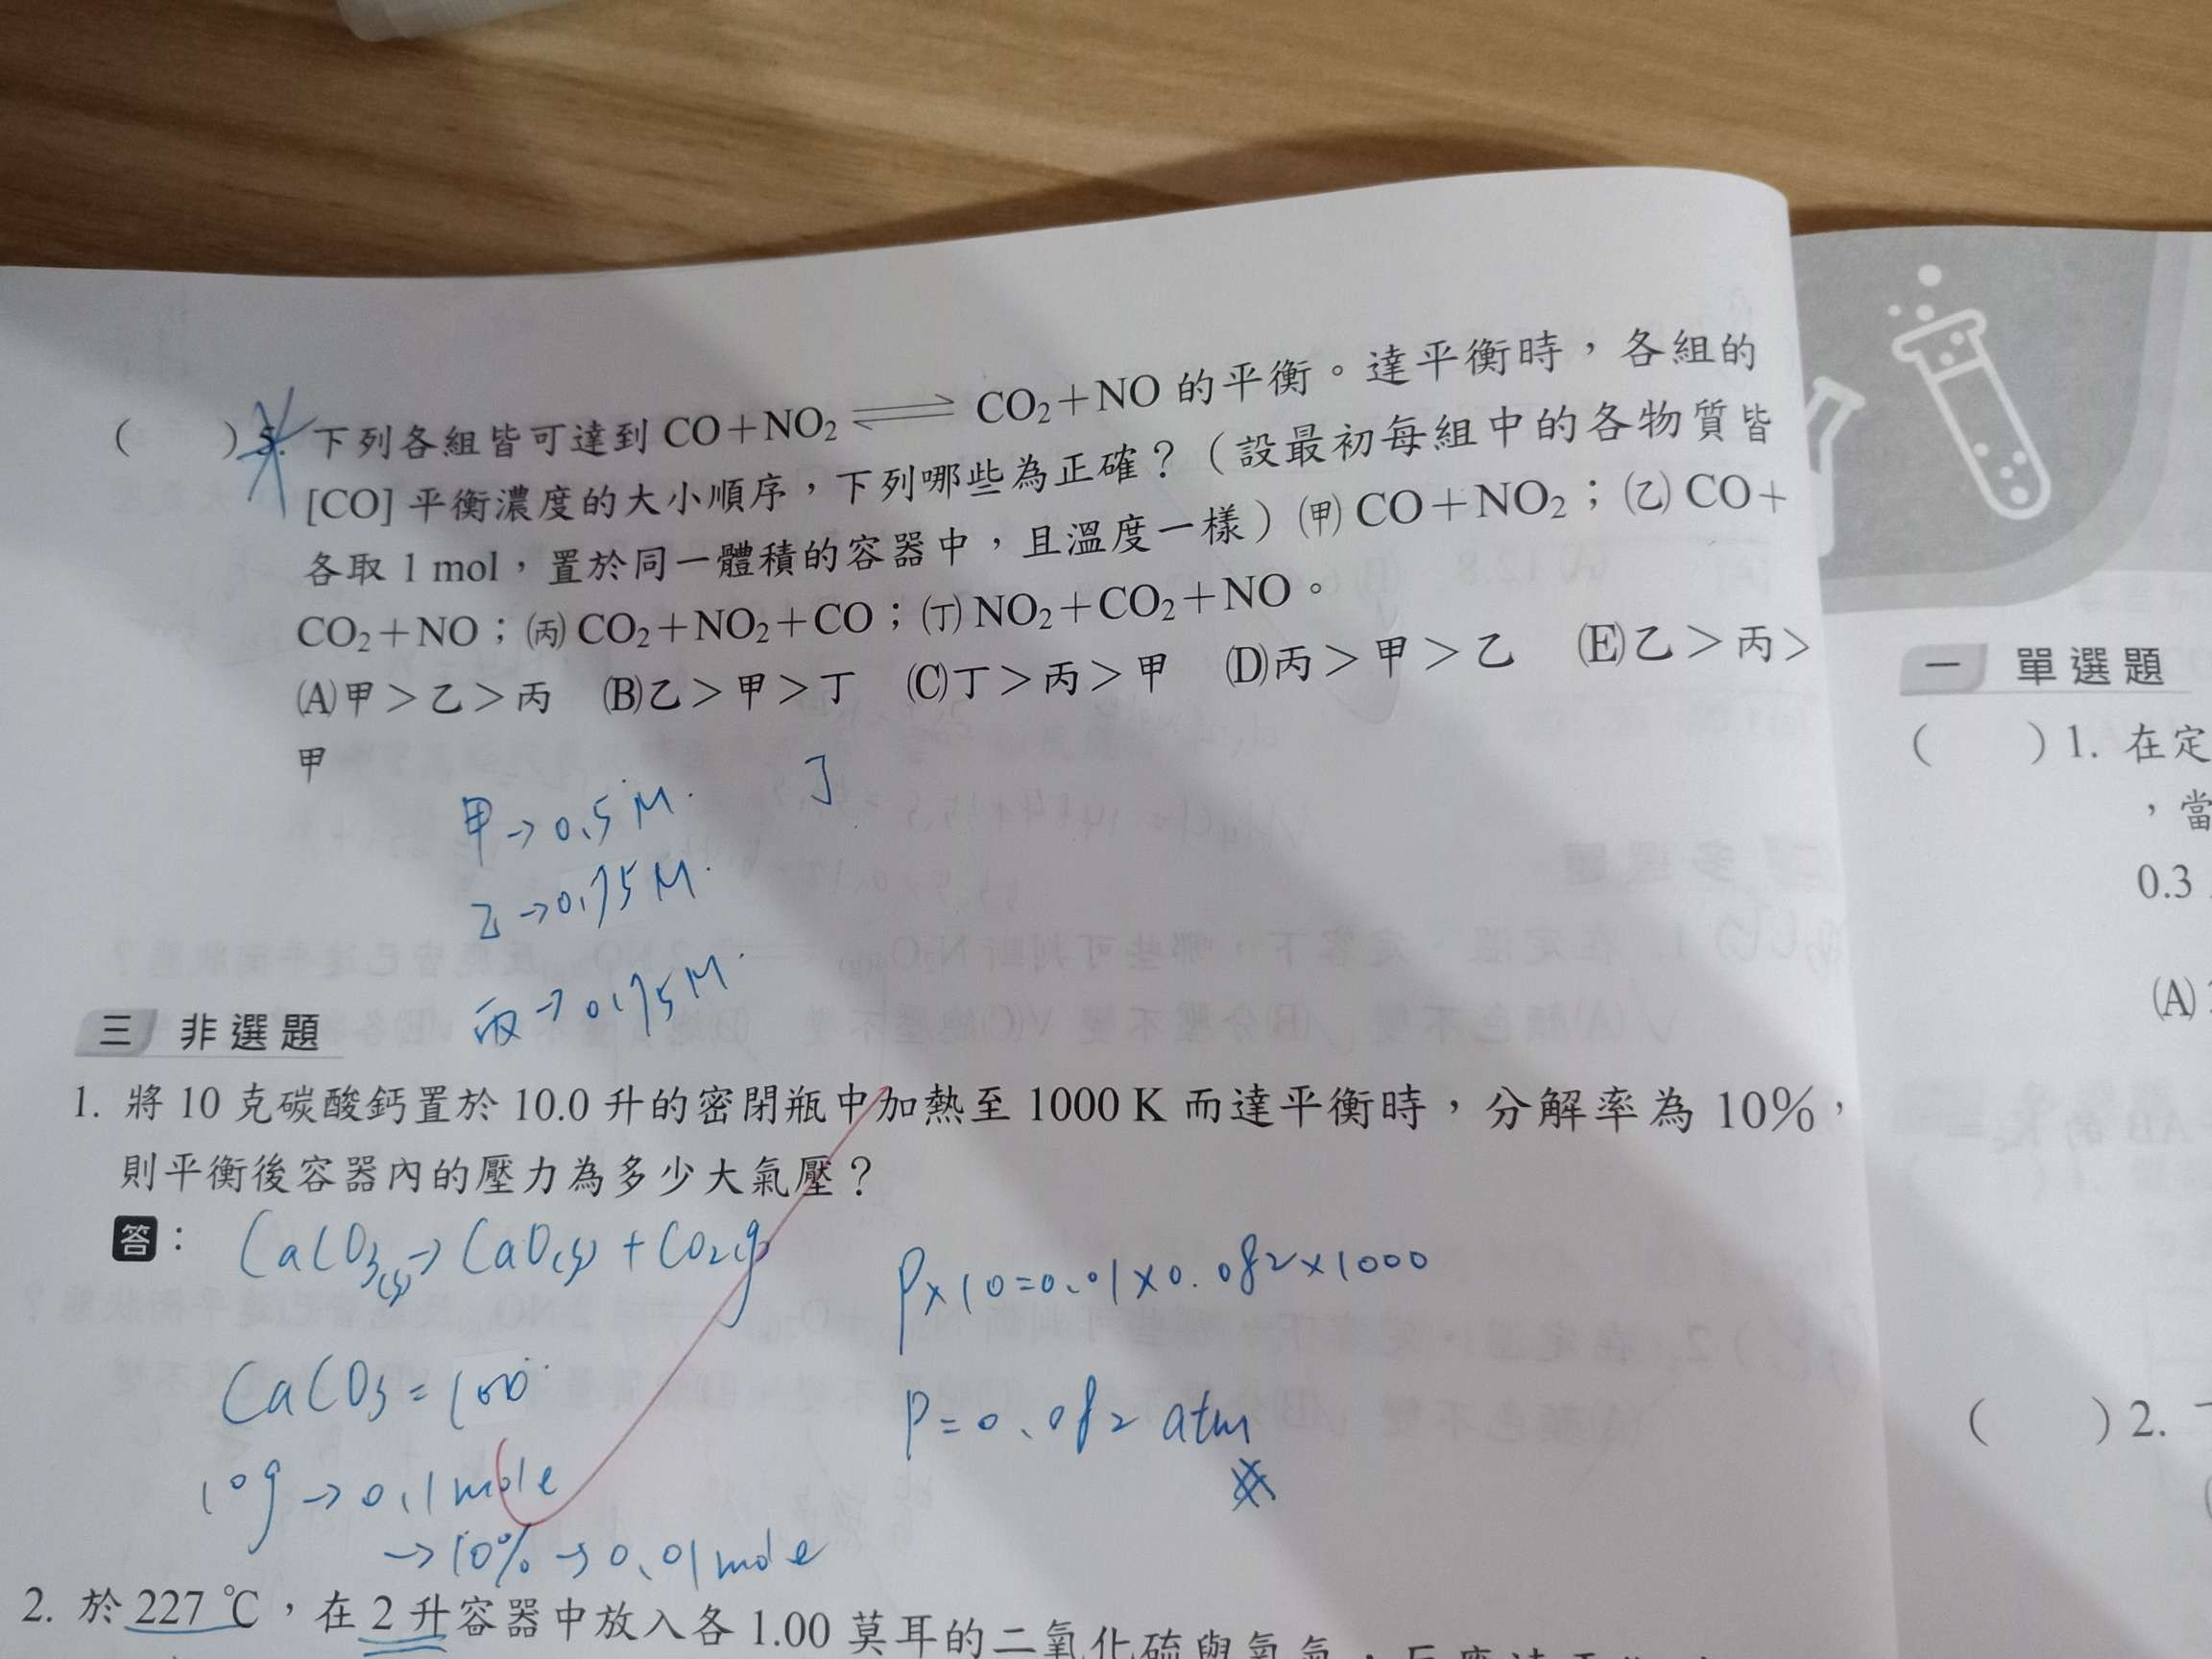 (　　)5. 下列各組皆可達到 CO+NO₂ ⇌ CO₂+NO 的平衡。達平衡時，各組的
[CO] 平衡濃度的大小順序，下列哪些為正確？（設最初每組中的各物質皆
各取 1 mol，置於同一體積的容器中，且溫度一樣）(甲) CO+NO₂；(乙) CO+
CO₂+NO；(丙) CO₂+NO₂+CO；(丁) NO₂+CO₂+NO。
(A)甲＞乙＞丙 (B)乙＞甲＞丁 (C)丁＞丙＞甲 (D)丙＞甲＞乙 (E)乙＞丙＞
甲
甲→0.5M. 丁
乙→0.75M.
丙→0.75M.
三 非選題
1. 將 10 克碳酸鈣置於 10.0 升的密閉瓶中加熱至 1000 K 而達平衡時，分解率為 10%，
則平衡後容器內的壓力為多少大氣壓？
答：
CaCO3(s)→CaO(s)+CO2(g)
CaCO3=100
10g→0.1mole
→10%→0.01mole
P×10=0.01×0.082×1000
P=0.082 atm
2. 於 227 ℃，在 2 升容器中放入各 1.00 莫耳的二氧化硫與氧氣，
一 單選題
(　　)1. 在定
，當
0.3
(A)
(　　)2.